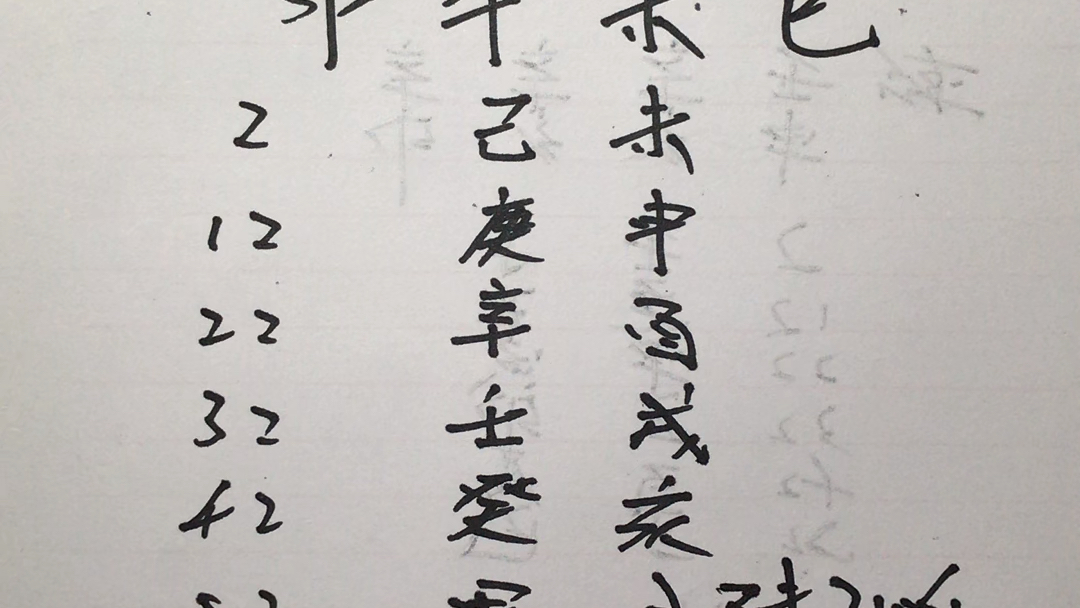 卯 午 未 巳
2 己 未
12 庚 申
22 辛 酉
32 壬 戌
42 癸 亥